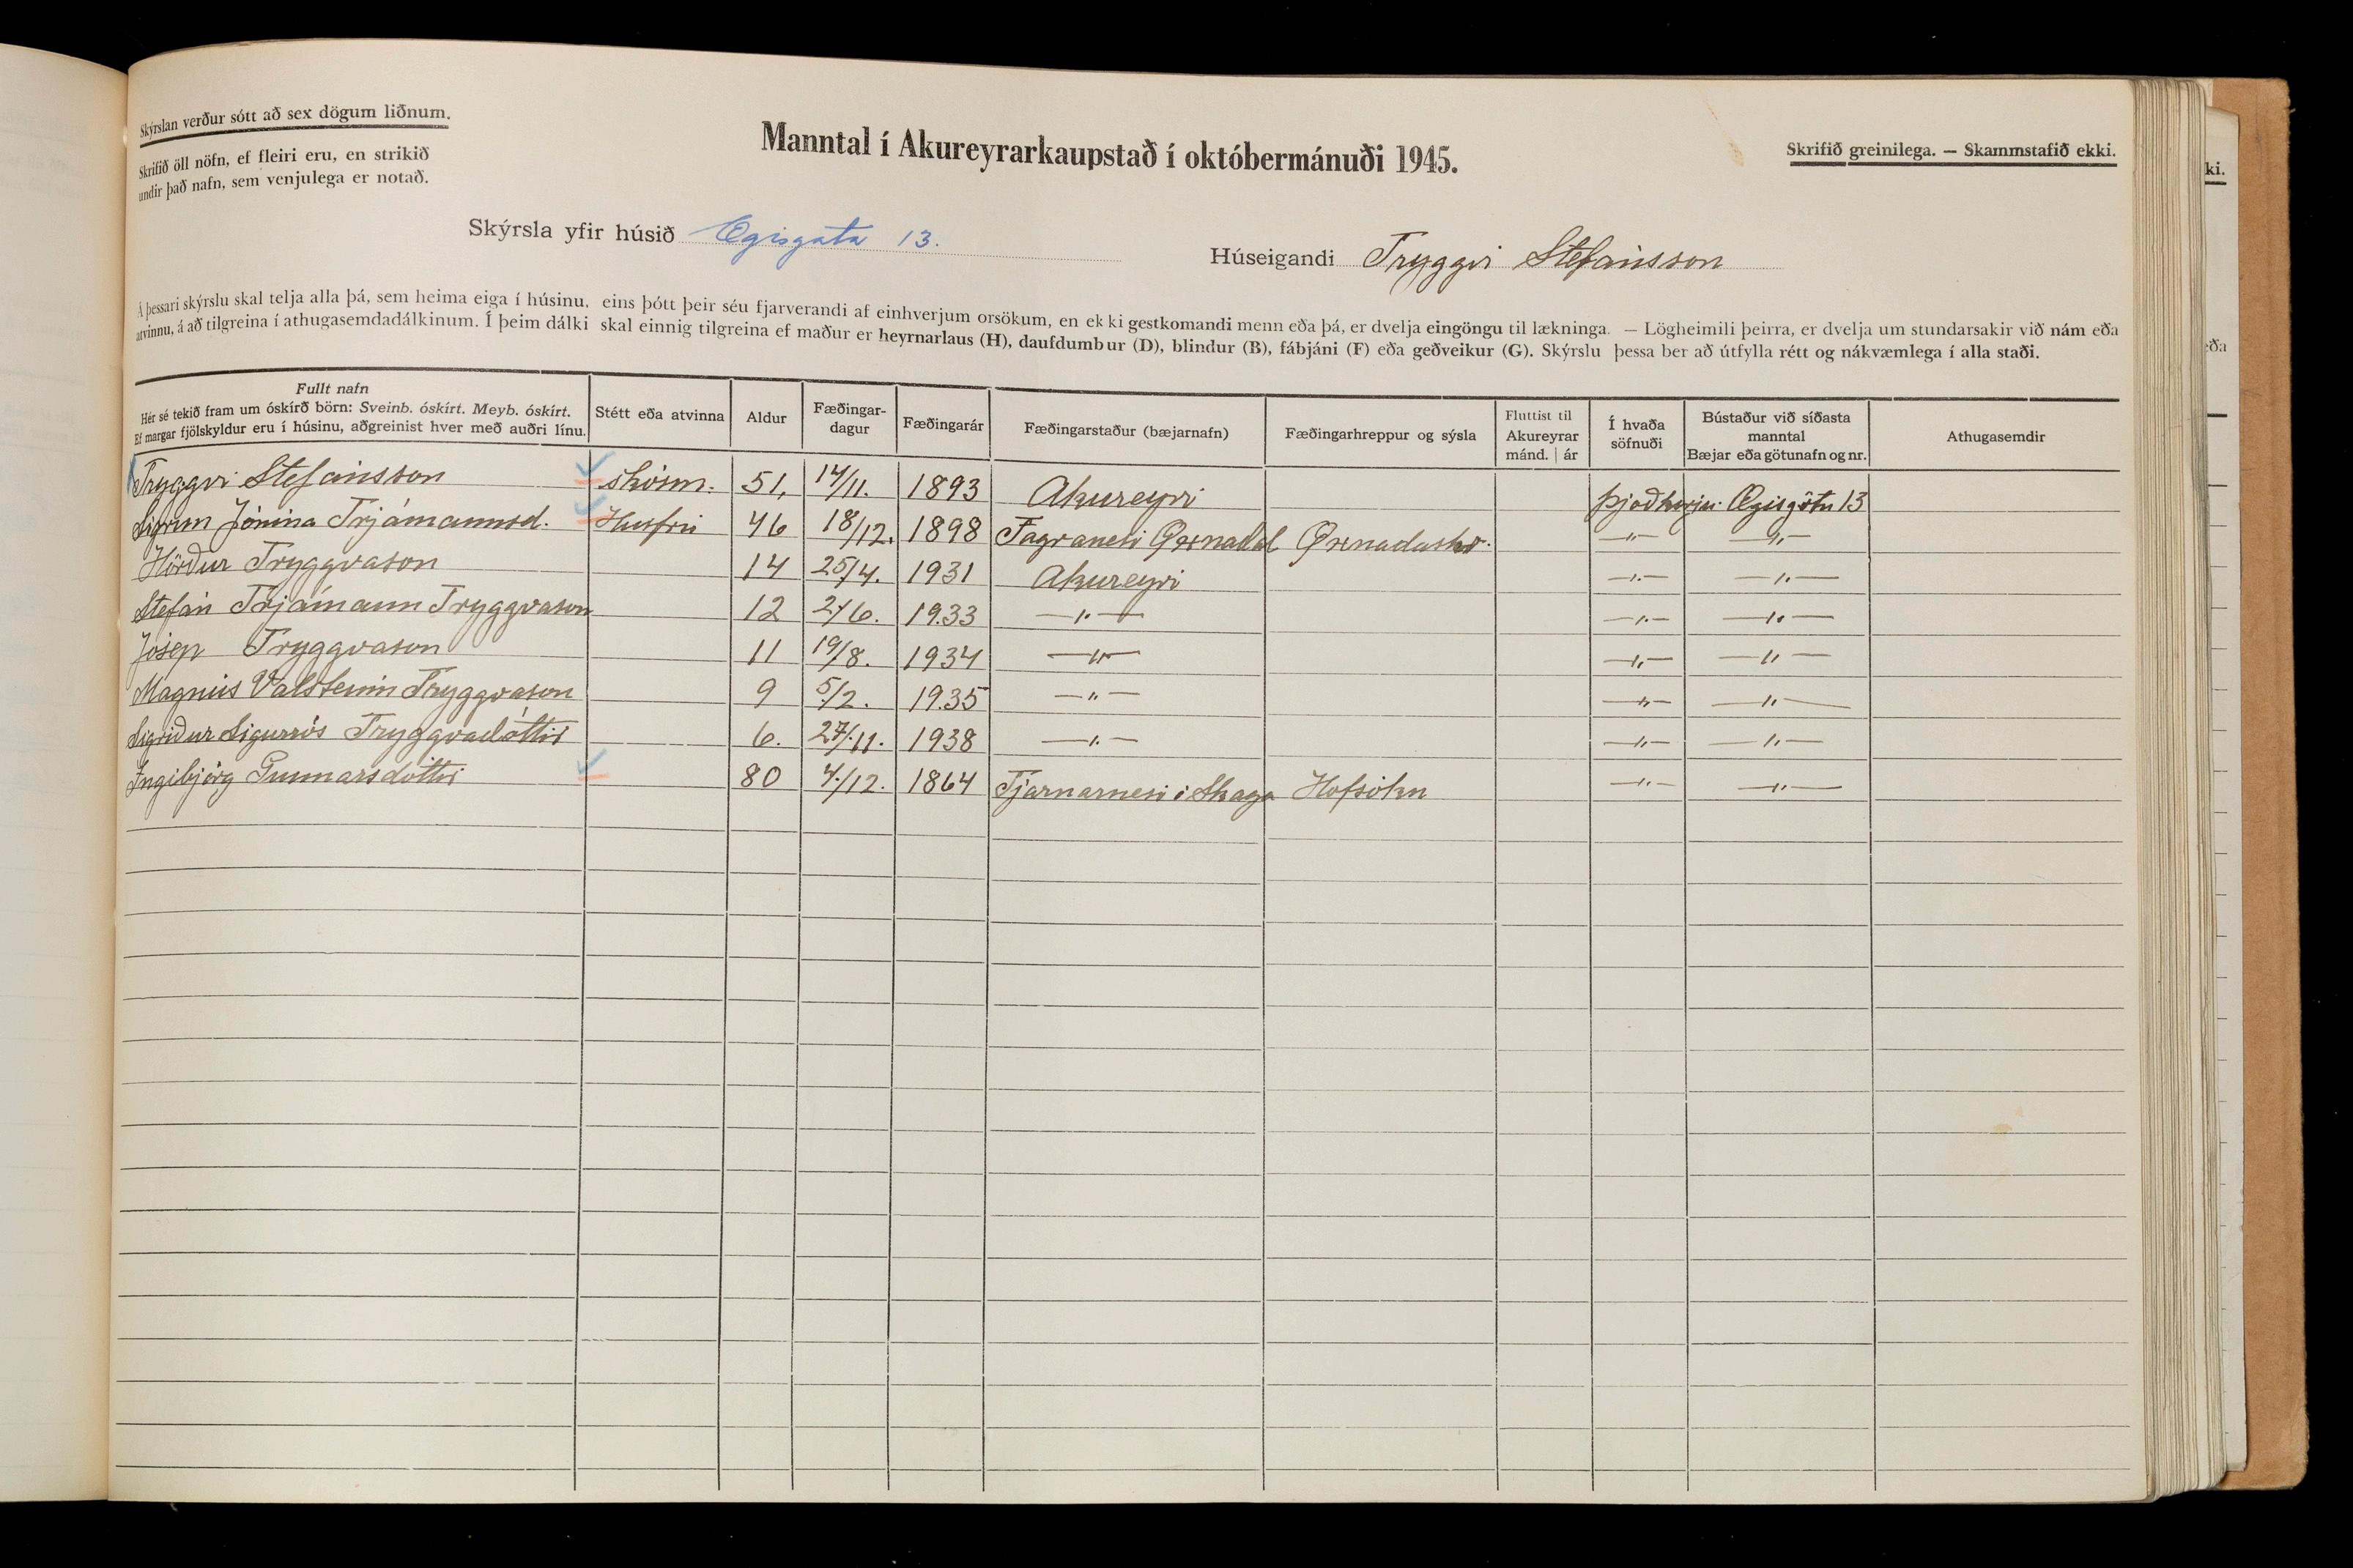 Skýrslan verður sótt að sex dögum liðnum.
Skrifið öll nöfn, ef fleiri eru, en strikið
undir það nafn, sem venjulega er notað.
Manntal í Akureyrarkaupstað í októbermánuði 1945.
Skrifið greinilega. — Skammstafið ekki.
Skýrsla yfir húsið Ægisgata 13.
Húseigandi Tryggvi Stefánsson
Á þessari skýrslu skal telja alla þá, sem heima eiga í húsinu, eins þótt þeir séu fjarverandi af einhverjum orsökum, en ekki gestkomandi menn eða þá, er dvelja eingöngu til lækninga. — Lögheimili þeirra, er dvelja um stundarsakir við nám eða
atvinnu, á að tilgreina í athugasemdadálkinum. Í þeim dálki skal einnig tilgreina ef maður er heyrnarlaus (H), daufdumbur (D), blindur (B), fábjáni (F) eða geðveikur (G). Skýrslu þessa ber að útfylla rétt og nákvæmlega í alla staði.
Fullt nafn
Hér sé tekið fram um óskírð börn: Sveinb. óskírt. Meyb. óskírt.
Ef margar fjölskyldur eru í húsinu, aðgreinist hver með auðri línu.
Stétt eða atvinna
Aldur
Fæðingar-
dagur
Fæðingarár
Fæðingarstaður (bæjarnafn)
Fæðingarhreppur og sýsla
Fluttist til
Akureyrar
mánd. | ár
Í hvaða
söfnuði
Bústaður við síðasta
manntal
Bæjar eða götunafn og nr.
Athugasemdir
Tryggvi Stefánsson skósm. 51. 14/11. 1893 Akureyri Þjóðkirkju Ægisgötu 13
Sigrún Jónína Trjámannsd. Húsfrú 46 18/12. 1898 Fagranesi Öxnadal Öxnadashr. —"— —"—
Hörður Tryggvason 14 25/4. 1931 Akureyri —"— —"—
Stefán Trjámann Tryggvason 12 2/6. 1933 —"— —"— —"—
Jósep Tryggvason 11 19/8. 1934 —"— —"— —"—
Magnús Valsteinn Tryggvason 9 5/2. 1935 —"— —"— —"—
Sigríður Sigurrós Tryggvadóttir 6. 27/11. 1938 —"— —"— —"—
Ingibjörg Gunnarsdóttir 80 4/12. 1864 Tjarnarnesi í Skaga Hofsókn —"— —"—